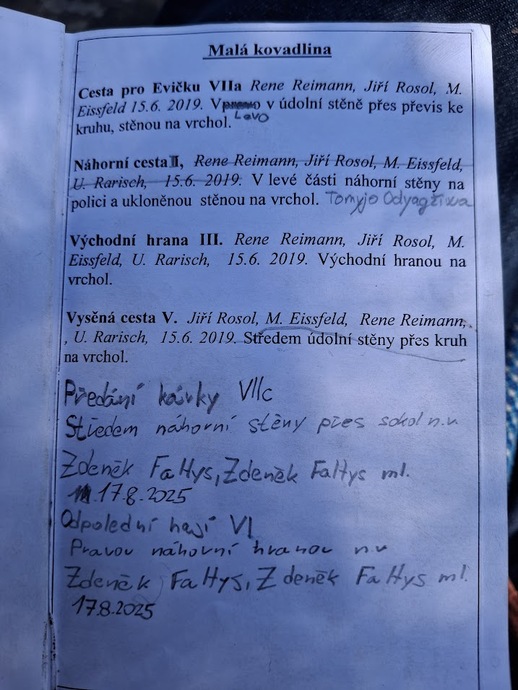 Malá kovadlina
Cesta pro Evičku VIIa Rene Reimann, Jiří Rosol, M.
Eissfeld 15.6. 2019. Vpravo v údolní stěně přes převis ke
Levo
kruhu, stěnou na vrchol.
Náhorní cesta II, Rene Reimann, Jiří Rosol, M. Eissfeld,
U. Rarisch, 15.6. 2019. V levé části náhorní stěny na
polici a ukloněnou stěnou na vrchol.
Východní hrana III. Rene Reimann, Jiří Rosol, M.
Eissfeld, U. Rarisch, 15.6. 2019. Východní hranou na
vrchol.
Vysěná cesta V. Jiří Rosol, M. Eissfeld, Rene Reimann,
, U. Rarisch, 15.6. 2019. Středem údolní stěny přes kruh
na vrchol.
Předání kávky VIIc
Středem náhorní stěny přes sokol n.v
Zdeněk Faltys, Zdeněk Faltys ml.
17.8.2025
Odpolední VI
Pravou náhorní hranou n.v
Zdeněk Faltys, Zdeněk Faltys ml.
17.8.2025